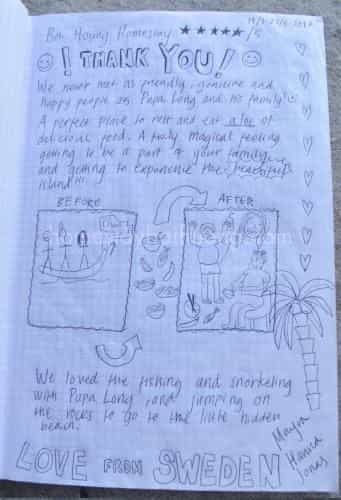 Hong Homestay ★★★★★/5
! THANK YOU!
We never met as friendly, genuine and
happy people as Papa Long and his family!
A perfect place to rest and eat a lot of
delicious food. A truly magical feeling
getting to be a part of your family
and getting to experience the beautiful
island
BEFORE
AFTER
We loved the fishing and snorkeling
with Papa Long, and jumping on
the rocks to go to the little hidden
beach.
Hanna
Jonas
LOVE FROM SWEDEN